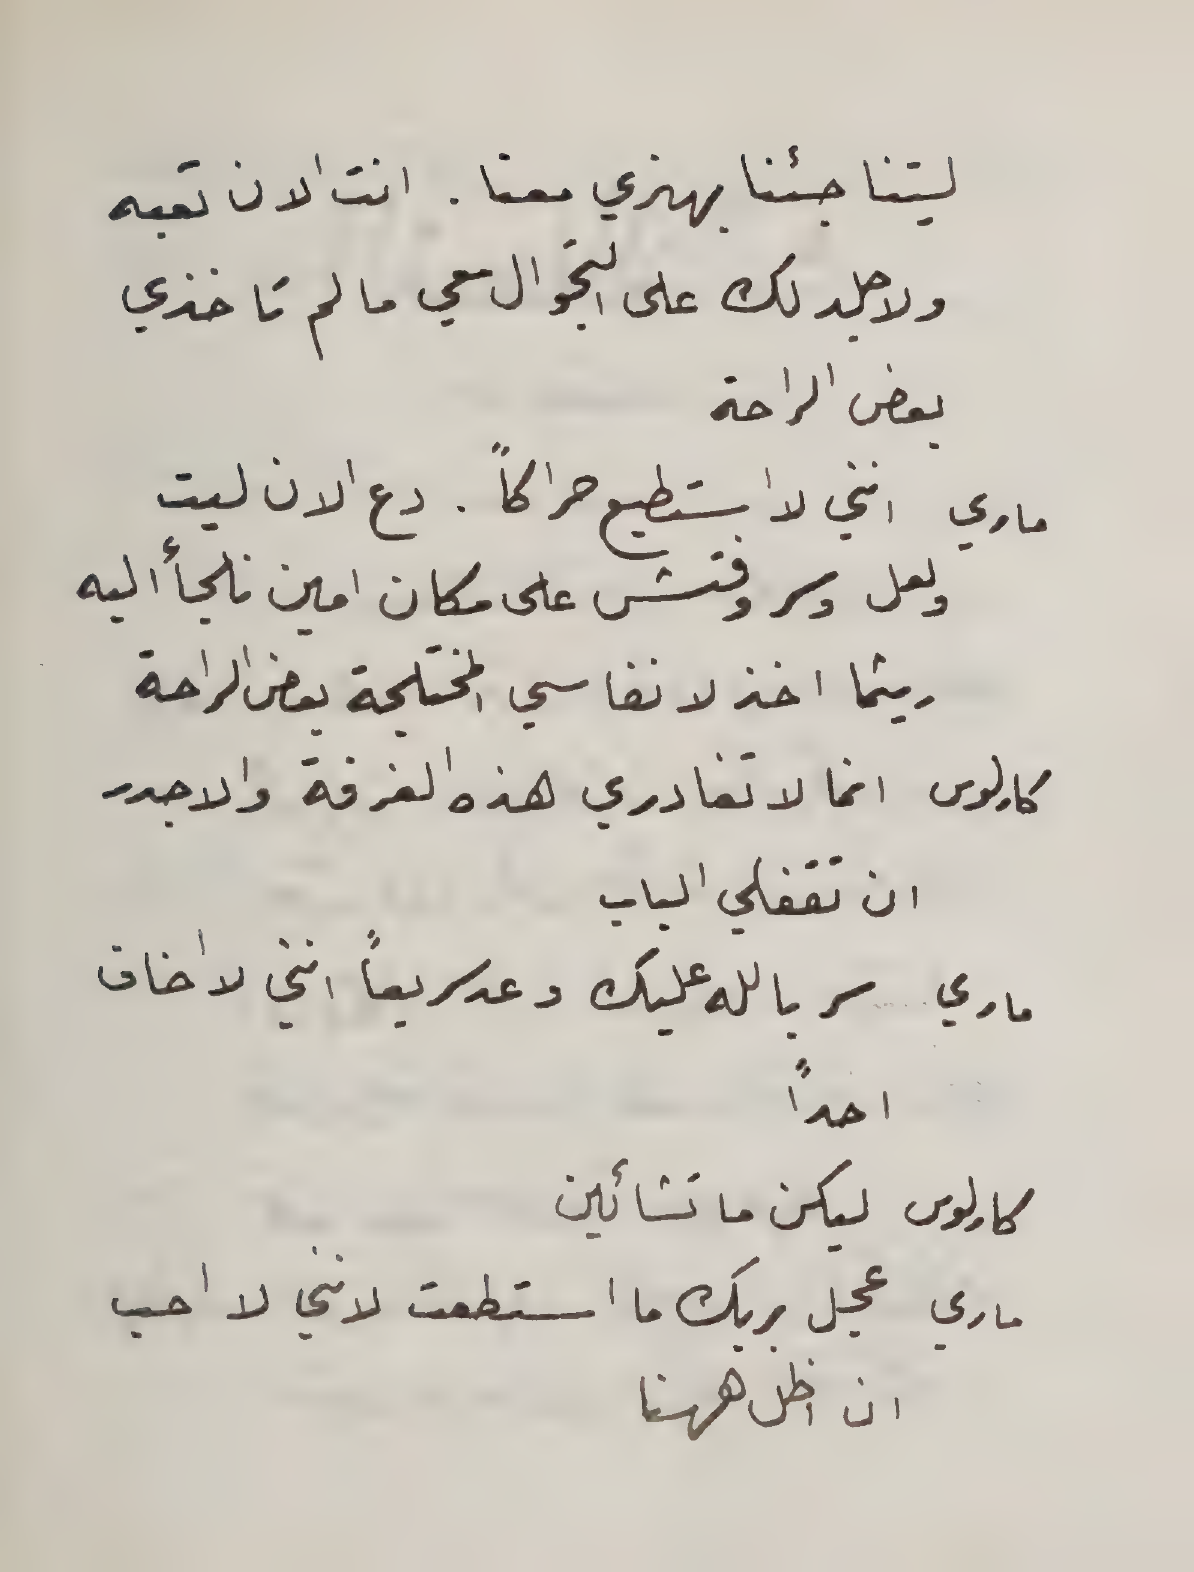 ليتنا جئنا بهنري معنا . انت الان تعبه
ولا جلد لك على التجوال معي ما لم تاخذي
بعض الراحة
ماري انني لا استطيع حراكاً . دع الان ليت
ولعل وسر وفتش على مكان امين نلجأ اليه
ريثما اخذ لانفاسي المختلجة بعض الراحة
كارلوس انما لا تغادري هذه الغرفة والاجدر
ان تقفلي الباب
ماري سر بالله عليك وعد سريعاً انني لا اخاف
احداً
كارلوس ليكن ما تشائين
ماري عجل بربك ما استطعت لانني لا احب
ان اظل ههنا